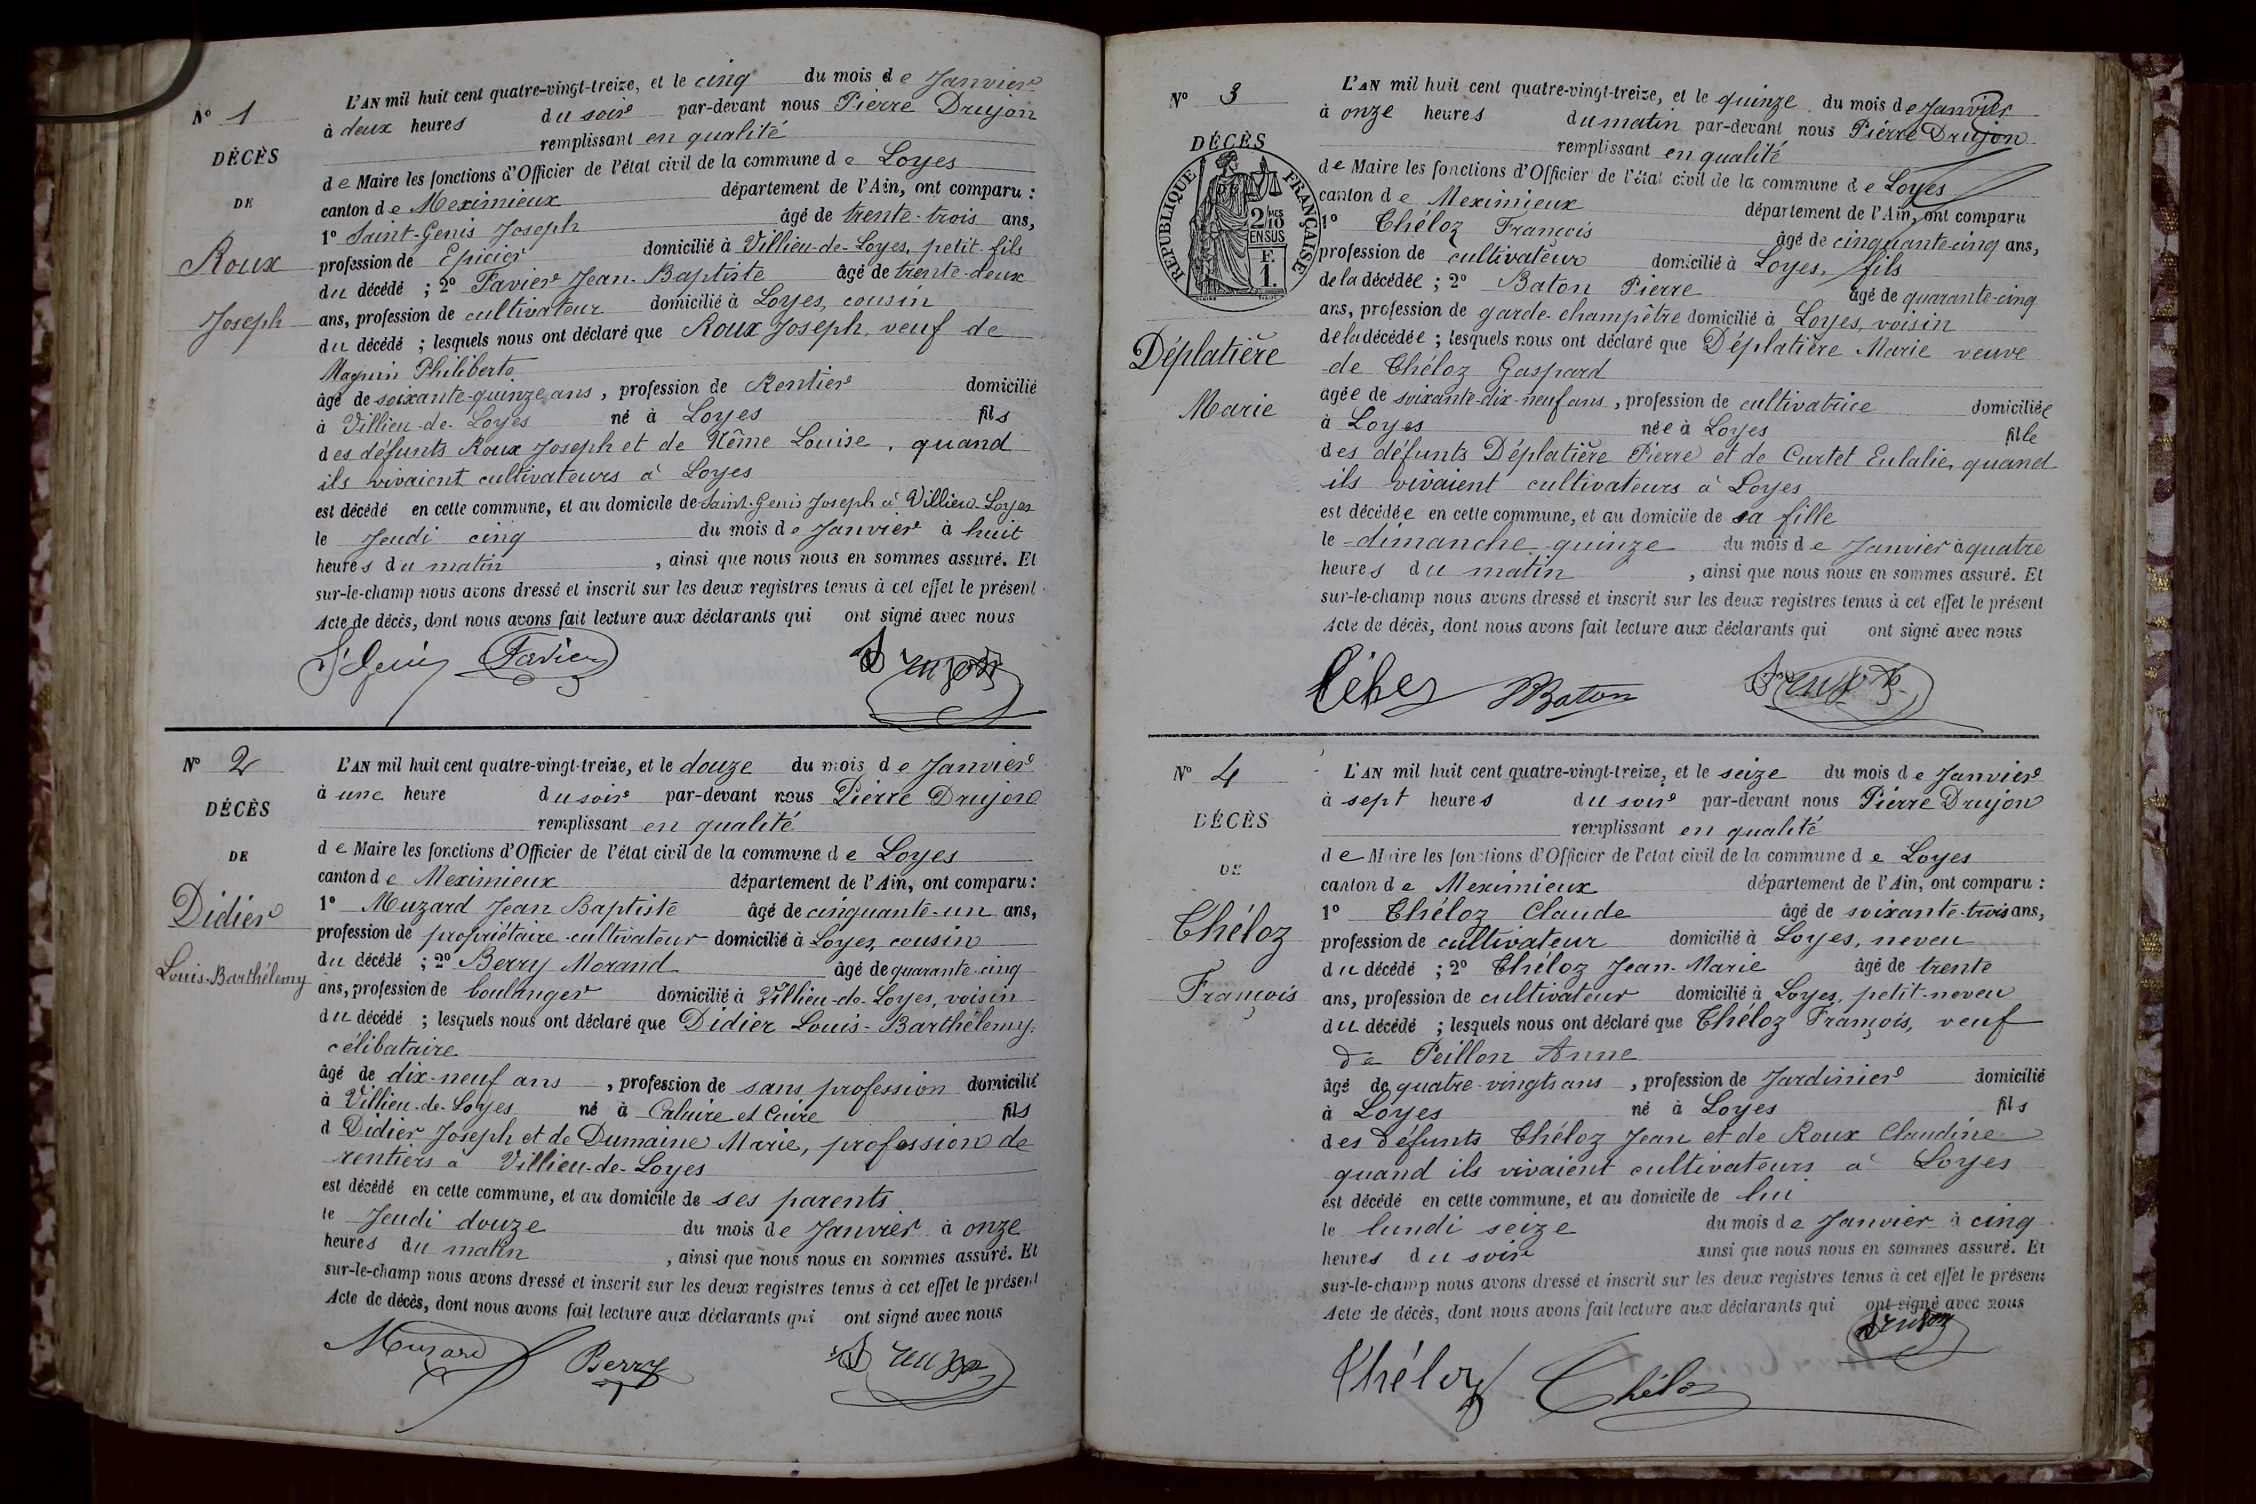 N° 1
DÉCÈS
DE
Roux
Joseph
L'AN mil huit cent quatre-vingt-treize, et le cinq du mois de Janvier
à deux heures du soir par-devant nous Pierre Drujon
remplissant en qualité
de Maire les fonctions d'Officier de l'état civil de la commune de Loyes
canton de Meximieux département de l'Ain, ont comparu :
1° Saint-Genis Joseph âgé de trente-trois ans,
profession de Epicier domicilié à Villieu-de-Loyes, petit-fils
du décédé ; 2° Favier Jean-Baptiste âgé de trente-deux
ans, profession de cultivateur domicilié à Loyes, cousin
du décédé ; lesquels nous ont déclaré que Roux Joseph, veuf de
Magnin Philiberte
âgé de soixante-quinze ans, profession de Rentier domicilié
à Villieu-de-Loyes né à Loyes fils
des défunts Roux Joseph et de Louise, quand
ils vivaient cultivateurs à Loyes
est décédé en cette commune, et au domicile de Saint-Genis Joseph à Villieu-Loyes
le Jeudi cinq du mois de Janvier à huit
heures du matin, ainsi que nous nous en sommes assuré. Et
sur-le-champ nous avons dressé et inscrit sur les deux registres tenus à cet effet le présent
Acte de décès, dont nous avons fait lecture aux déclarants qui ont signé avec nous
St Genis Favier Drujon
N° 2
DÉCÈS
DE
Didier
Louis-Barthélemy
L'AN mil huit cent quatre-vingt-treize, et le douze du mois de Janvier
à une heure du soir par-devant nous Pierre Drujon
remplissant en qualité
de Maire les fonctions d'Officier de l'état civil de la commune de Loyes
canton de Meximieux département de l'Ain, ont comparu :
1° Muzard Jean Baptiste âgé de cinquante-un ans,
profession de propriétaire-cultivateur domicilié à Loyes, cousin
du décédé ; 2° Berry Morand âgé de quarante-cinq
ans, profession de boulanger domicilié à Villieu-de-Loyes, voisin
du décédé ; lesquels nous ont déclaré que Didier Louis-Barthélemy,
célibataire
âgé de dix-neuf ans, profession de sans profession domicilié
à Villieu-de-Loyes né à Caluire et Cuire fils
d Didier Joseph et de Dumaine Marie, profession de
rentiers à Villieu-de-Loyes
est décédé en cette commune, et au domicile de ses parents
le Jeudi douze du mois de Janvier à onze
heures du matin, ainsi que nous nous en sommes assuré. Et
sur-le-champ nous avons dressé et inscrit sur les deux registres tenus à cet effet le présent
Acte de décès, dont nous avons fait lecture aux déclarants qui ont signé avec nous
Muzard Berry Drujon
N° 3
DÉCÈS
RÉPUBLIQUE FRANÇAISE
2/10 MES
EN SUS
F.
1.
Déplatière
Marie
L'AN mil huit cent quatre-vingt-treize, et le quinze du mois de Janvier
à onze heures du matin par-devant nous Pierre Drujon
remplissant en qualité
de Maire les fonctions d'Officier de l'état civil de la commune de Loyes
canton de Meximieux département de l'Ain, ont comparu
1° Théloz François âgé de cinquante-cinq ans,
profession de cultivateur domicilié à Loyes, fils
de la décédée ; 2° Baton Pierre âgé de quarante-cinq
ans, profession de garde-champêtre domicilié à Loyes, voisin
de la décédée ; lesquels nous ont déclaré que Déplatière Marie veuve
de Théloz Gaspard
agée de soixante-dix-neuf ans, profession de cultivatrice domiciliée
à Loyes née à Loyes fille
des défunts Déplatière Pierre et de Curtet Eulalie, quand
ils vivaient cultivateurs à Loyes
est décédée en cette commune, et au domicile de sa fille
le dimanche quinze du mois de Janvier à quatre
heures du matin, ainsi que nous nous en sommes assuré. Et
sur-le-champ nous avons dressé et inscrit sur les deux registres tenus à cet effet le présent
Acte de décès, dont nous avons fait lecture aux déclarants qui ont signé avec nous
Baton Drujon
N° 4
DÉCÈS
DE
Théloz
François
L'AN mil huit cent quatre-vingt-treize, et le seize du mois de Janvier
à sept heures du soir par-devant nous Pierre Drujon
remplissant en qualité
de Maire les fonctions d'Officier de l'état civil de la commune de Loyes
canton de Meximieux département de l'Ain, ont comparu :
1° Théloz Claude âgé de soixante-trois ans,
profession de cultivateur domicilié à Loyes, neveu
du décédé ; 2° Théloz Jean-Marie âgé de trente
ans, profession de cultivateur domicilié à Loyes, petit-neveu
du décédé ; lesquels nous ont déclaré que Théloz François, veuf
de Peillon Anne
âgé de quatre-vingts ans, profession de Jardinier domicilié
à Loyes né à Loyes fils
des défunts Théloz Jean et de Roux Claudine
quand ils vivaient cultivateurs à Loyes
est décédé en cette commune, et au domicile de lui
le lundi seize du mois de Janvier à cinq
heures du soir ainsi que nous nous en sommes assuré. Et
sur-le-champ nous avons dressé et inscrit sur les deux registres tenus à cet effet le présent
Acte de décès, dont nous avons fait lecture aux déclarants qui ont signé avec nous
Drujon
Théloz Théloz